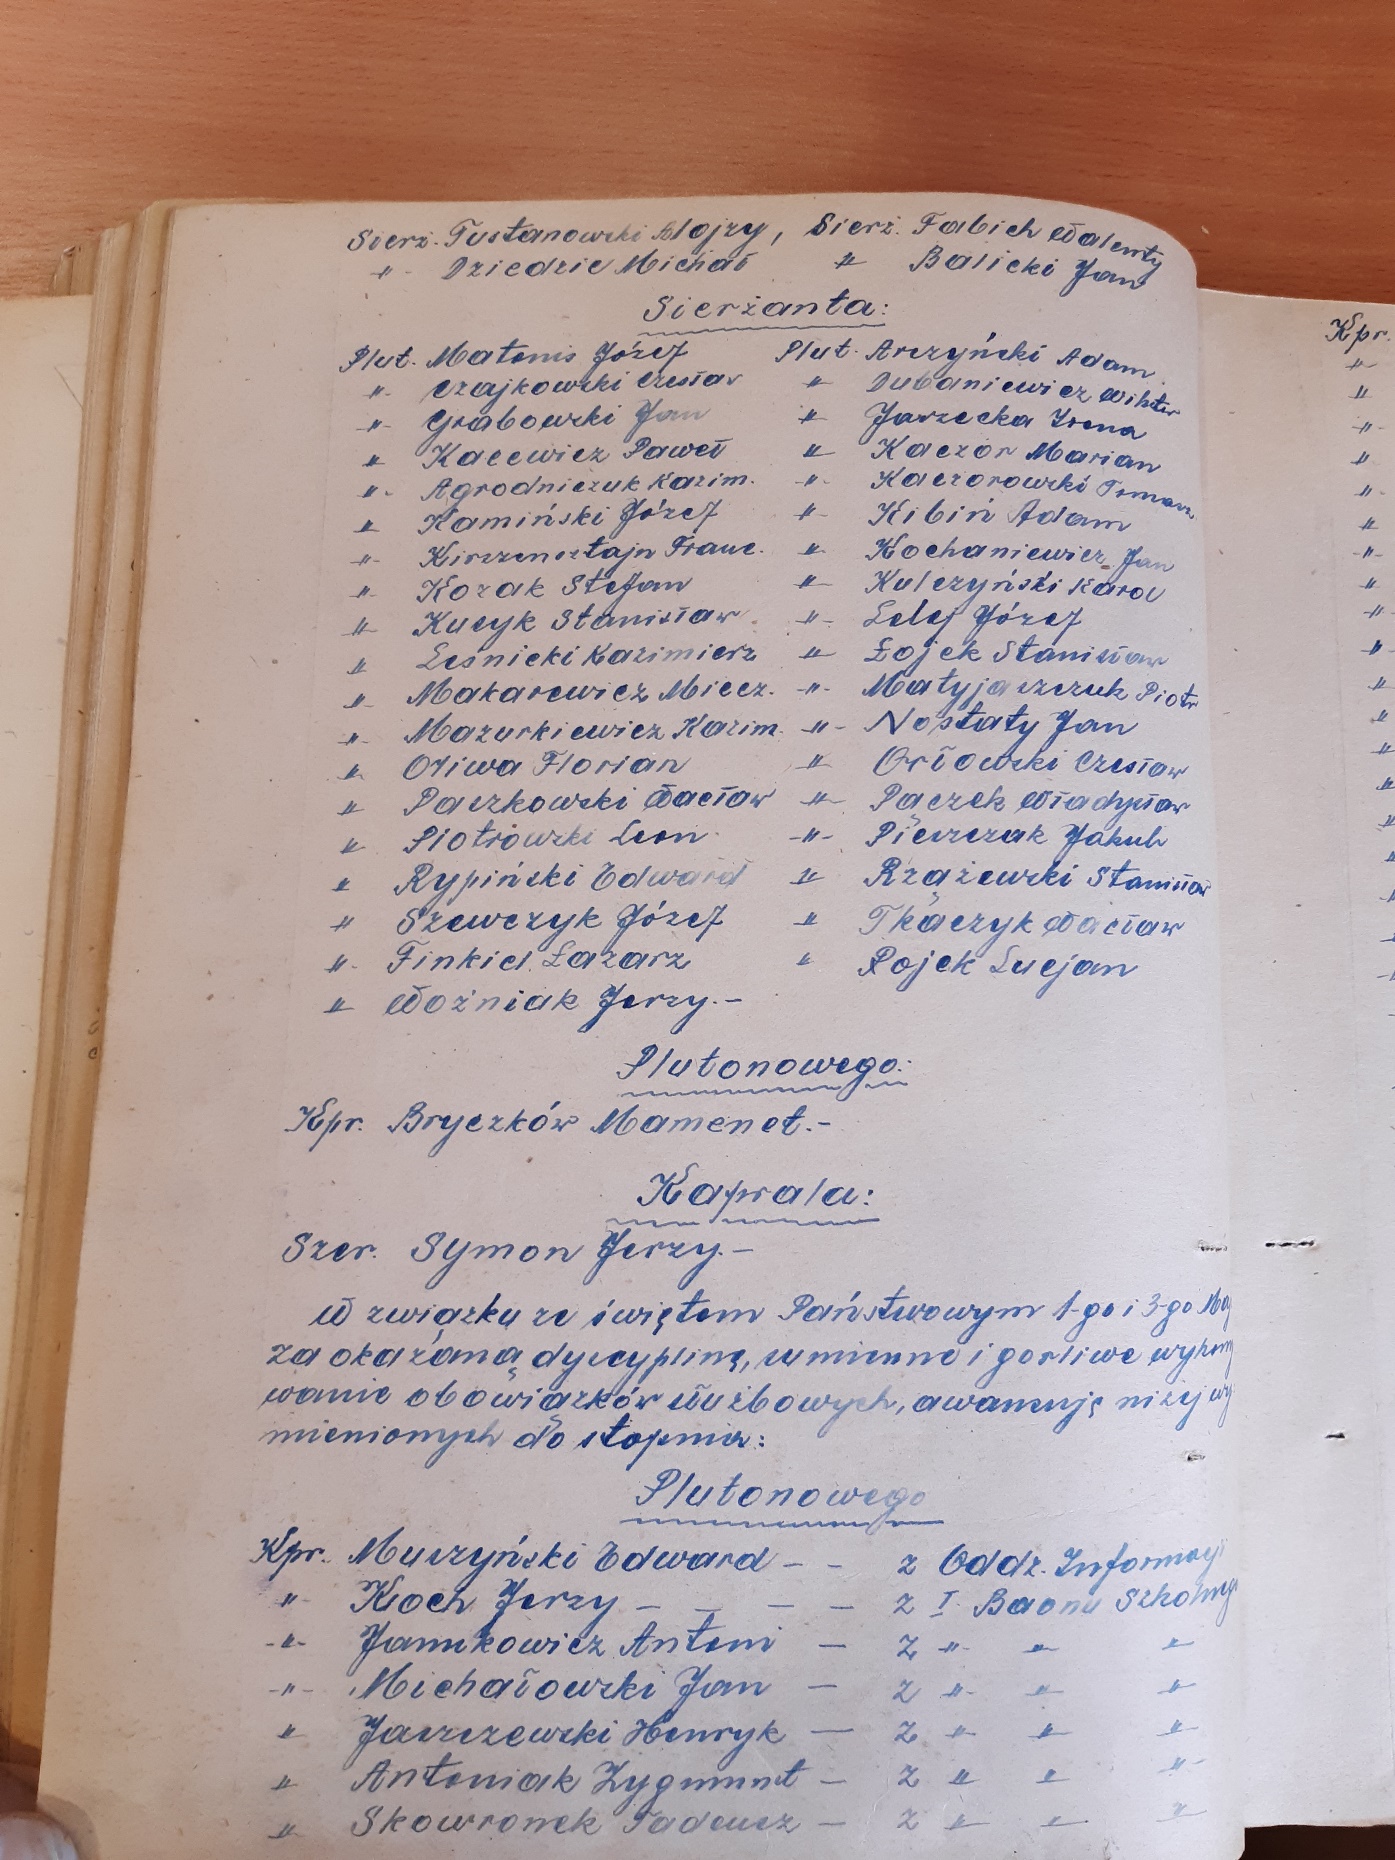 Sierz. Tustanowski Alojzy, Sierż. Fabich Walenty
-"- Dziedzic Michał -"- Balicki Jan
Sierżanta:
Plut. Matonis Józef Plut. Arczyński Adam
-"- Czajkowski Czesław -"- Dubaniewicz Wiktor
-"- Grabowski Jan -"- Jarzecka Irena
-"- Kacewicz Paweł -"- Kaczor Marian
-"- Agrodniczuk Kazim. -"- Kaczorowski Tomasz
-"- Kamiński Józef -"- Kibiń Adam
-"- Kirszensztajn Franc. -"- Kochaniewicz Jan
-"- Kozak Stefan -"- Kulczyński Karol
-"- Kucyk Stanisław -"- Lelej Józef
-"- Leśnicki Kazimierz -"- Łojek Stanisław
-"- Makarewicz Miecz. -"- Matyjaszczuk Piotr
-"- Mazurkiewicz Kazim. -"- Nostaty Jan
-"- Oliwa Florian -"- Orłowski Czesław
-"- Paczkowski Wacław -"- Pączek Władysław
-"- Piotrowski Leon -"- Pieszczak Jakub
-"- Rypiński Edward -"- Rzążewski Stanisław
-"- Szewczyk Józef -"- Tkaczyk Wacław
-"- Finkiel Łazarz " Rojek Lucjan
-"- Woźniak Jerzy.-
Plutonowego:
Kpr. Bryczków Mamenet.-
Kaprala:
Szer. Symon Jerzy.-
W związku ze świętem Państwowym 1-go i 3-go Maj
za okazaną dyscyplinę, sumienne i gorliwe wykony
wanie obowiązków służbowych, awansuję niżej wy
mienionych do stopnia:
Plutonowego
Kpr. Muszyński Edward - - z Oddz. Informacji
-"- Koch Jerzy - - - - z I. Baonu Szkolnego
-"- Janukowicz Antoni - z -"- -"- -"-
-"- Michałowski Jan - z -"- -"- -"-
-"- Jaszczewski Henryk - z -"- -"- -"-
-"- Antoniak Zygmunt - z -"- -"- -"-
-"- Skowronek Tadeusz - z -"- -"- -"-
Kpr.